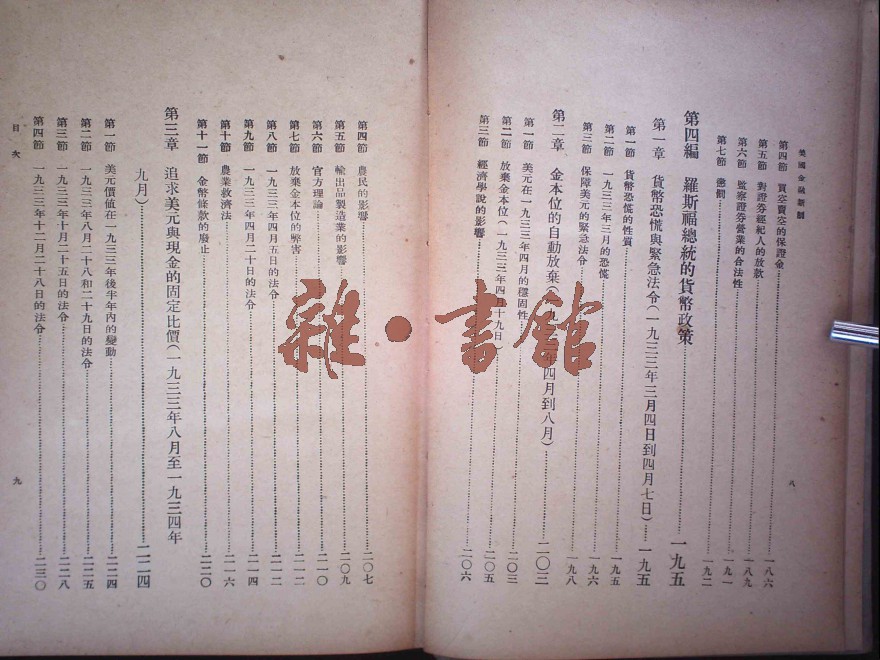 美國金融新制
第四節 買空賣空的保證金 一八六
第五節 對證券經紀人的放款 一八九
第六節 監察證券營業的合法性 一九一
第七節 懲罰 一九二
第四編 羅斯福總統的貨幣政策 一九五
第一章 貨幣恐慌與緊急法令(一九三三年三月四日到四月七日) 一九五
第一節 貨幣恐慌的性質 一九五
第二節 一九三三年三月的恐慌 一九六
第三節 保障美元的緊急法令 一九八
第二章 金本位的自動放棄(一九三三年四月到八月) 二〇三
第一節 美元在一九三三年四月的穩固性 二〇三
第二節 放棄金本位(一九三三年四月十九日) 二〇五
第三節 經濟學說的影響 二〇六
八
第四節 農民的影響 二〇七
第五節 輸出品製造業的影響 二〇九
第六節 官方理論 二一〇
第七節 放棄金本位的弊害 二一二
第八節 一九三三年四月五日的法令 二一二
第九節 一九三三年四月二十日的法令 二一四
第十節 農業救濟法 二一六
第十一節 金幣條款的廢止 二二〇
第三章 追求美元與現金的固定比價(一九三三年八月至一九三四年
九月) 二二四
第一節 美元價値在一九三三年後半年內的變動 二二四
第二節 一九三三年八月二十八和二十九日的法令 二二五
第三節 一九三三年十月二十五日的法令 二二八
第四節 一九三三年十二月二十八日的法令 二三〇
目次
九
雜·書館